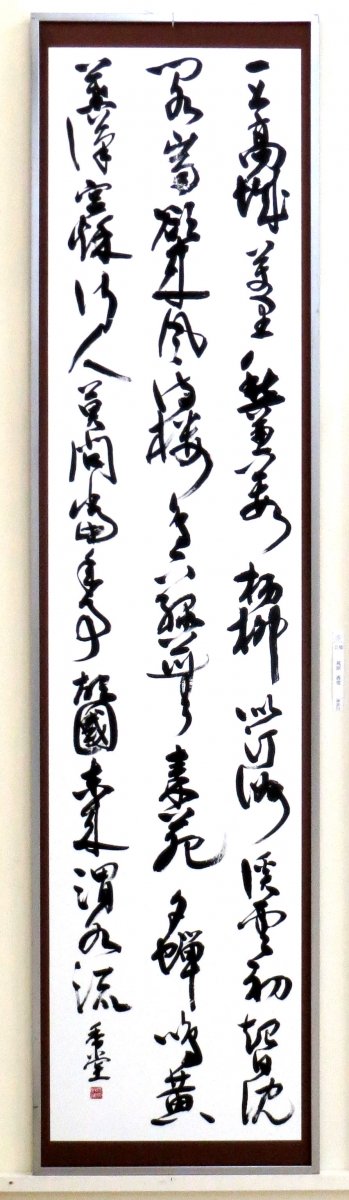 一上高城萬里愁蒹葭楊柳似汀洲溪雲初起日沈
閣山雨欲來風満楼鳥下緑蕪秦苑夕蟬鳴黄
葉漢宮秋行人莫問當年事故國東来渭水流 香堂